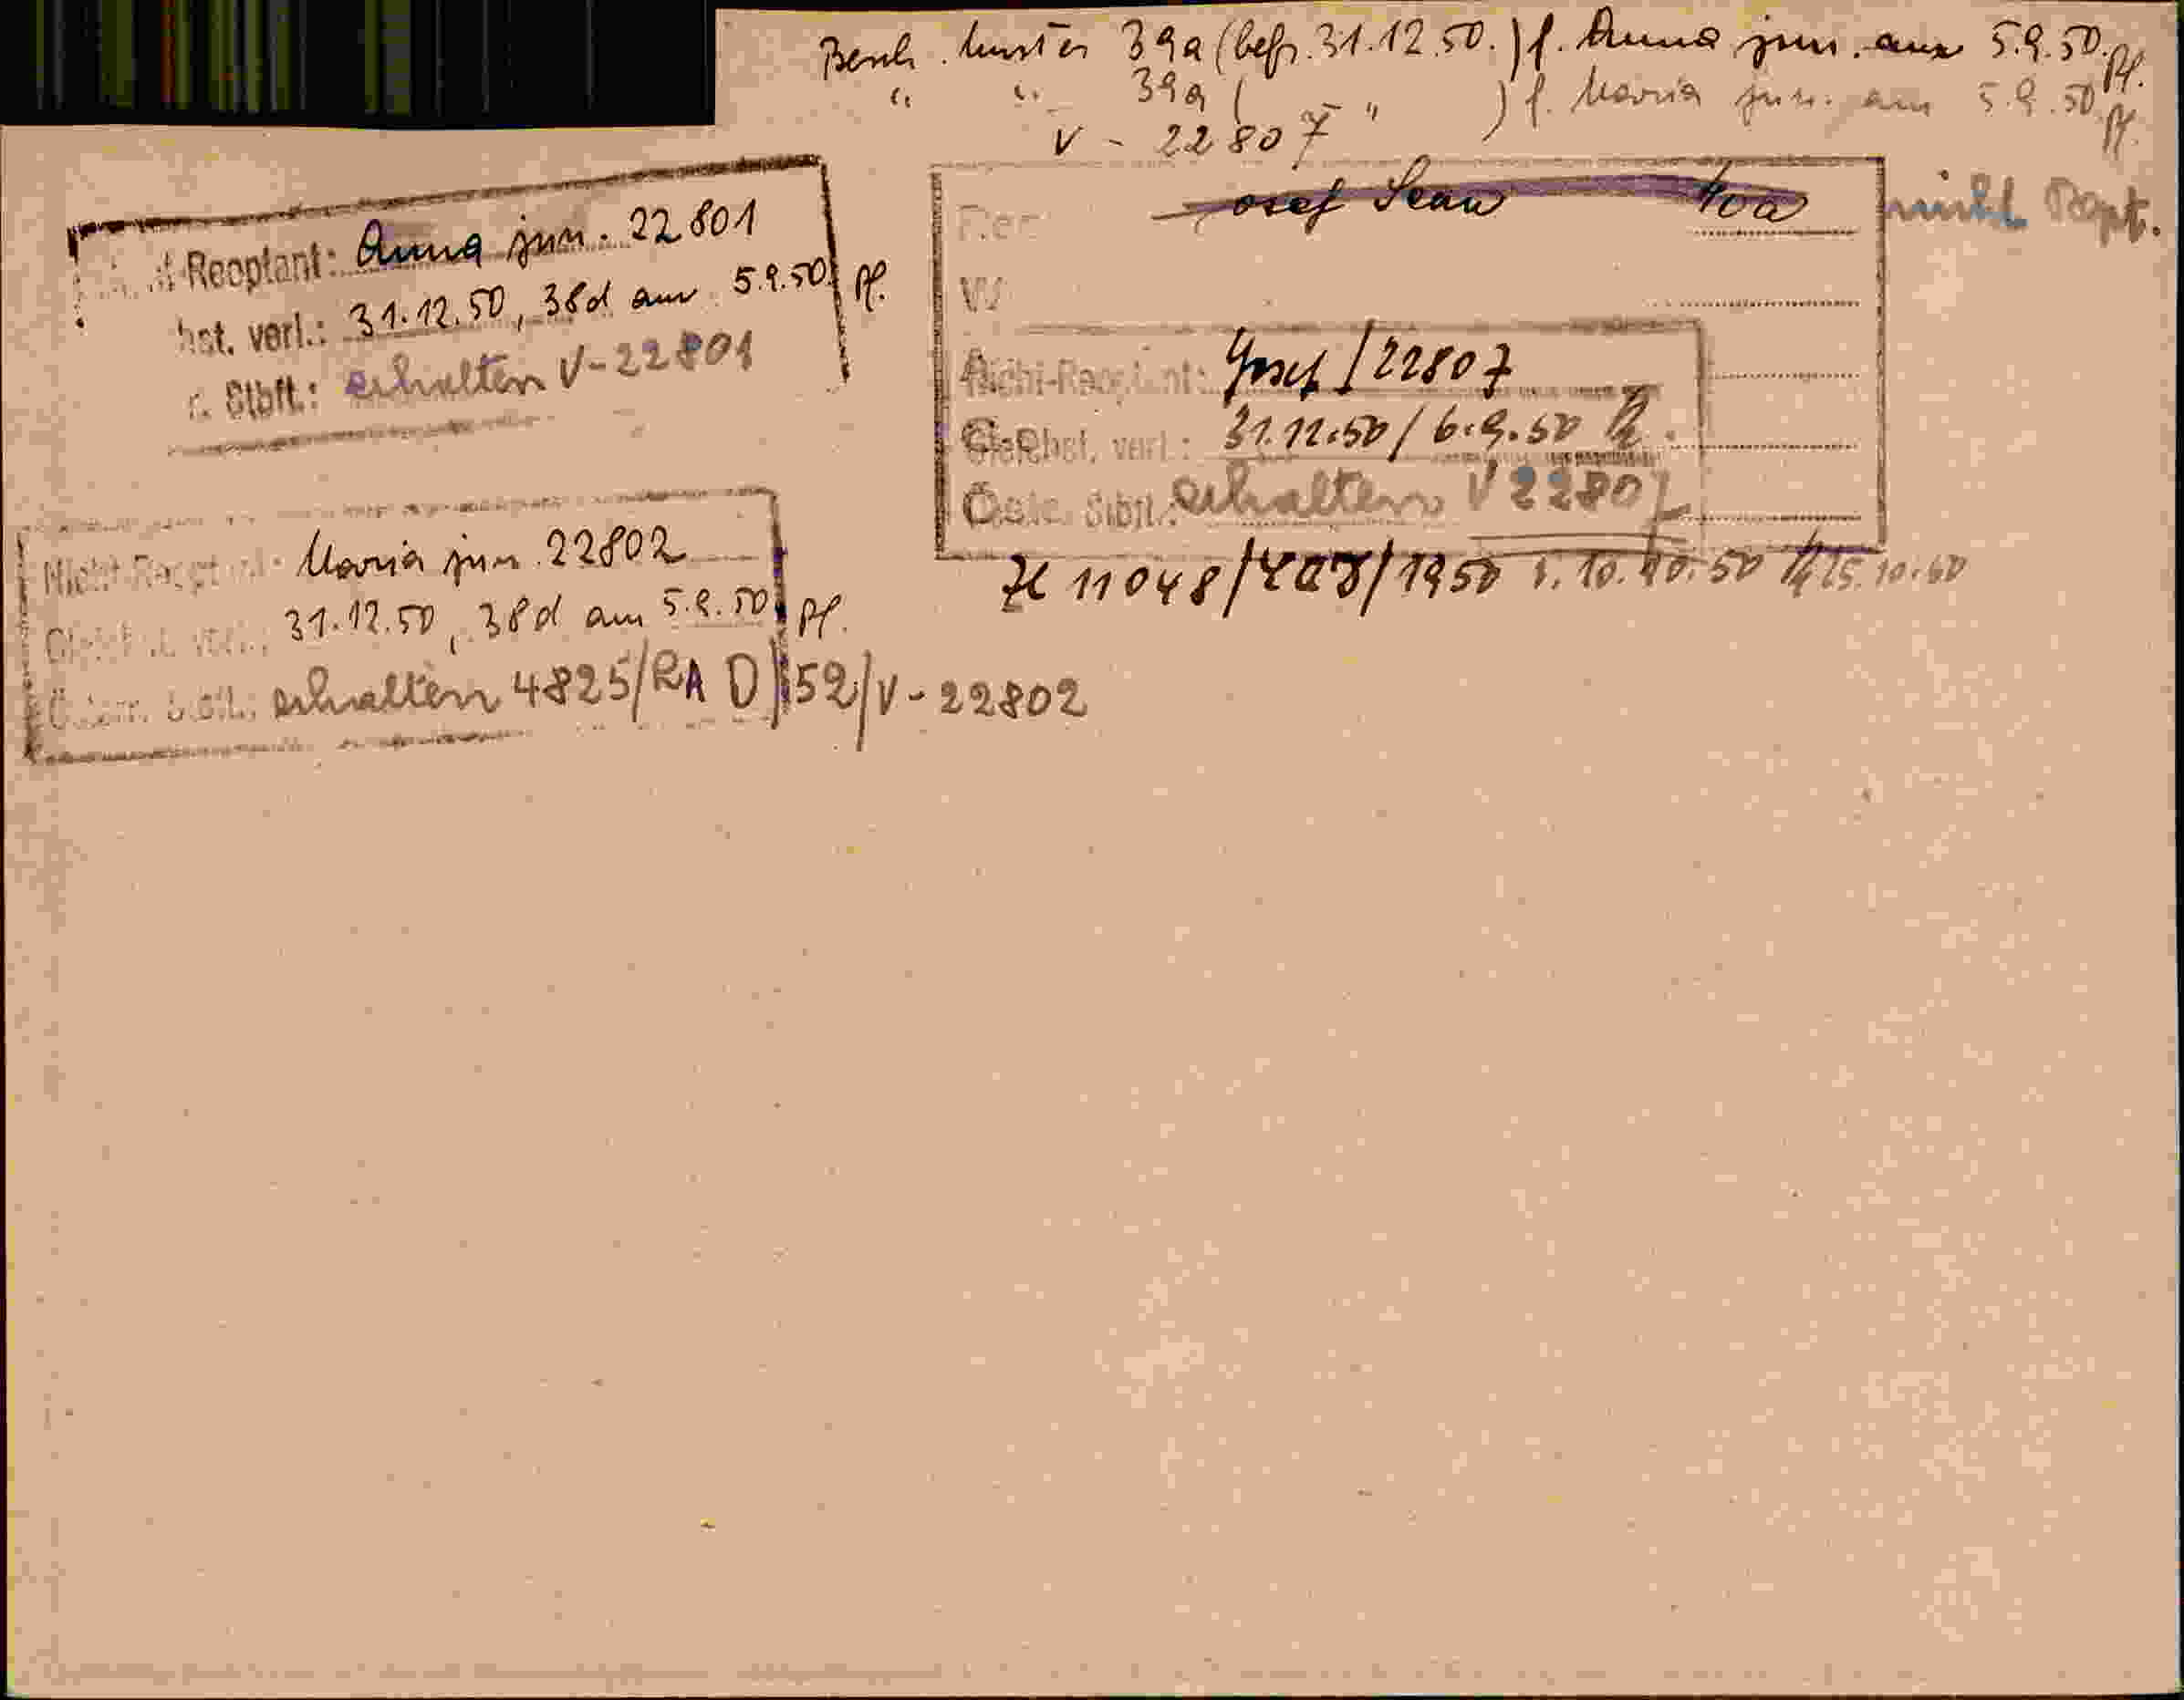 Besch. Muster 39a (befr. 31.12.50.) f. Anna jun. am 5.9.50. Pf.
" " 39a ( " ) f. Maria jun. am 5.9.50. Pf.
V - 22807
t-Reoptant: Anna jun. 22801
hst. verl.: 31.12.50, 38d am 5.9.50. Pf.
r. Stbft.: erhalten V-22801
osef 40a nicht Ropt.
Nicht-Reoptant: Josef / 22807
Gleichst. verl.: 31.12.50 / 6.9.50
Österr. Stbft.: erhalten V 22807
Zl 11048/ /1950 10.50 25.10.50
Nicht-Reoptant: Maria jun. 22802
Gleichst. verl.: 31.12.50, 38d am 5.9.50 Pf.
Österr. Stbft.: erhalten 4825/RA D/52/V-22802